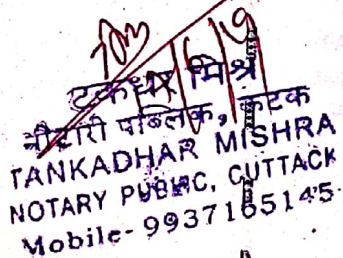 टंकधर मिश्र
नोटारी पब्लिक, कटक
TANKADHAR MISHRA
NOTARY PUBLIC, CUTTACK
Mobile- 9937165145